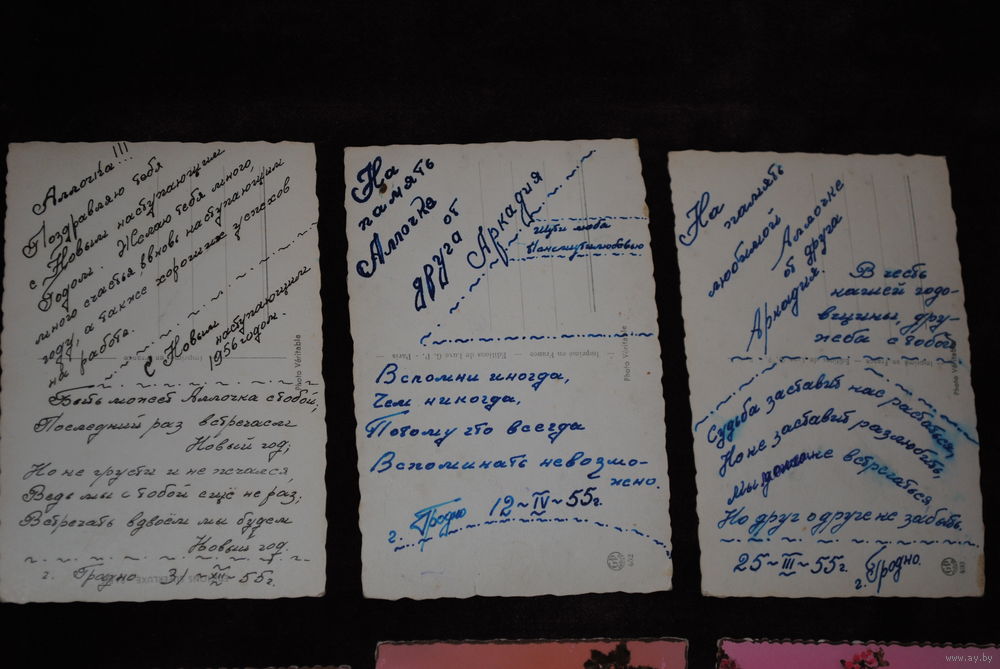 Аллочка!!!
Поздравляю тебя
с Новым наступающим
Годом. Желаю тебя много,
много счастья ввновь наступающим
году, а также хороших успехов
на работе.
С Новым наступающим
1956 годом.
Imprimé en France
Photo Véritable
Быть может Аллочка с тобой,
Последний раз встречаем
Новый год;
Но не грусти и не
Ведь мы с тобой ещё не раз.
Встречать вдвоём мы будем
Новый год.
г. Гродно 31~XII~55г.
На
память
Аллочке
от
друга Аркадия
Editions de Luxe G. P. Paris
Imprimé en France
Photo Véritable
Вспомни иногда,
Чем никогда,
Потому что всегда
Вспоминать невозмо-
жно.
г. Гродно 12~IV~55г.
На память
любимой Аллочке
от друга
Аркадия.
В честь
нашей годо-
вщины, дру-
жеба с тобой
Photo Véritable
Судьба заставит нас
Но не заставит разлюбить,
Мы не встречаться,
Но друг о друге не забыть.
25~III~55г.
г. Гродно.
www.ay.by